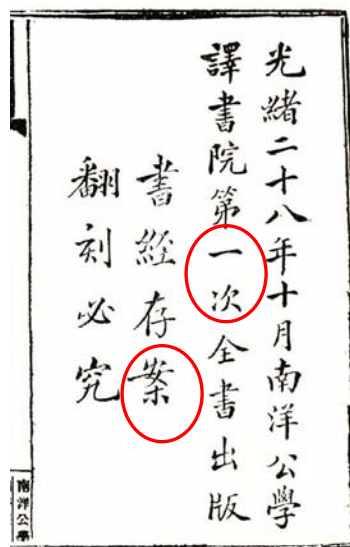 光緒二十八年十月南洋公學
譯書院第一次全書出版
書經存案
翻刻必究
南洋公學